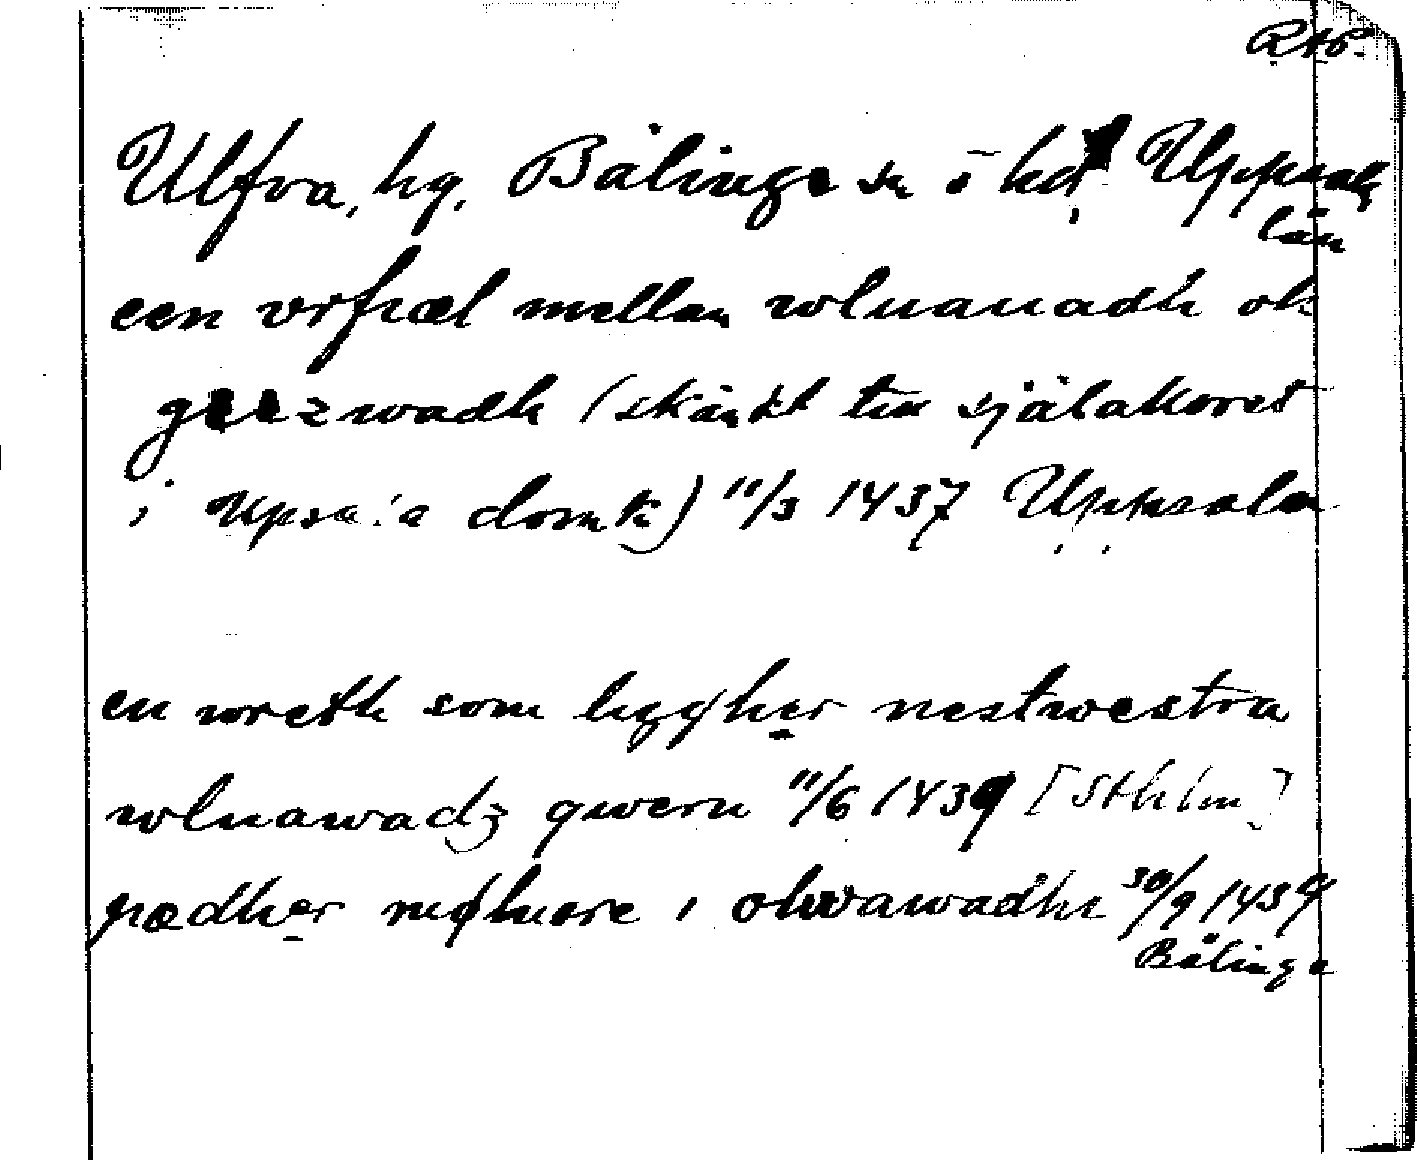 RAP.
Ulfva, hg. Bälinge sn o hd Uppsala
län
een vrfiæl mellan wluauadh ok
geezwadh (skänkt till själakoret
i Upsala domk) 11/3 1437 Uppsala
en wreth som liggher nestwestra
wluawadz qwern 11/6 1439 [Sthlm]
pædher mølnare i olwawadhe 30/9 1439
Bälinge